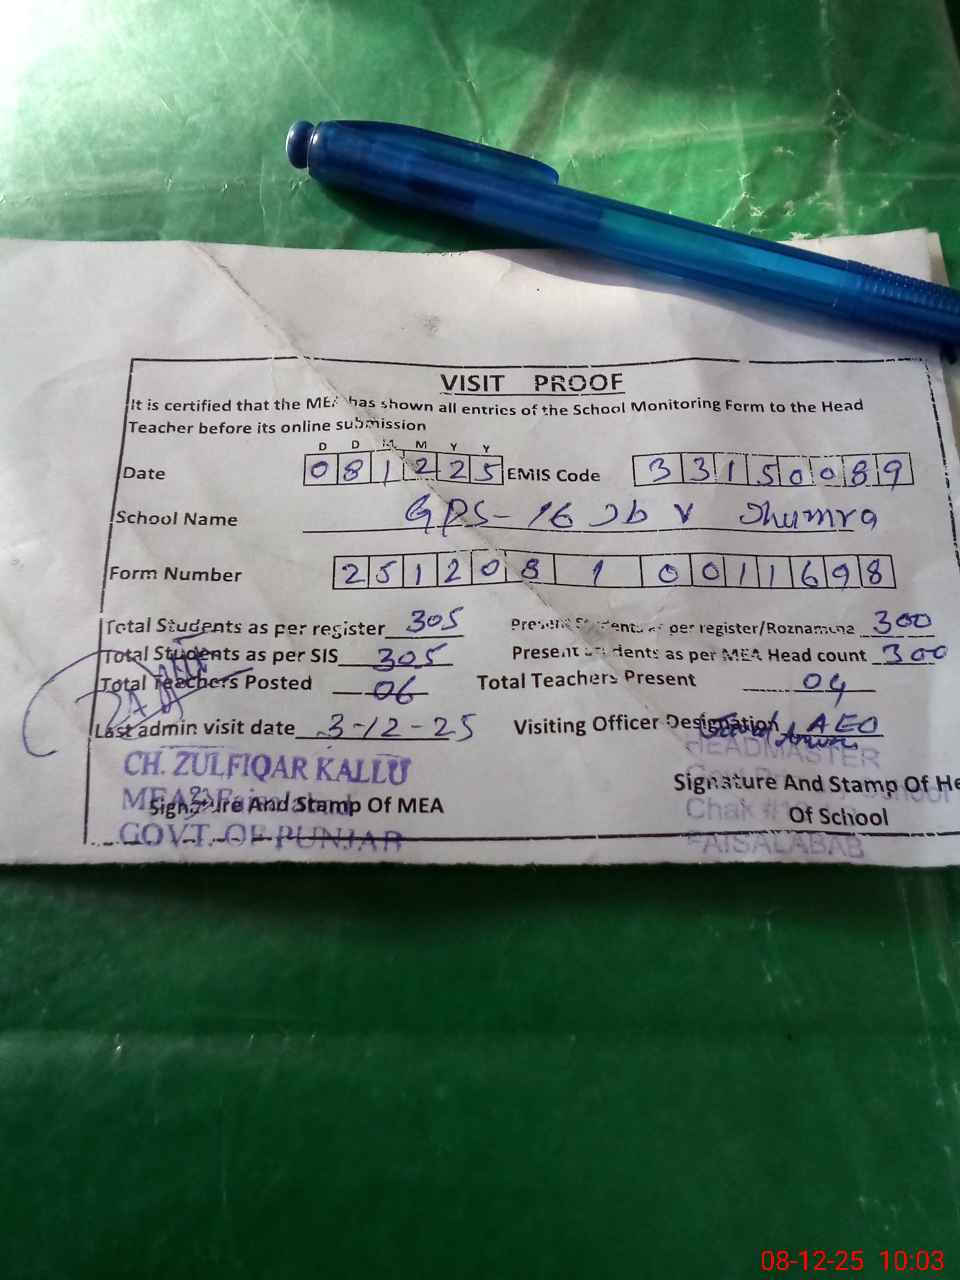 VISIT PROOF
It is certified that the MEA has shown all entries of the School Monitoring Form to the Head
Teacher before its online submission
D D M M Y Y
Date 081225 EMIS Code 33150089
School Name GPS-16 Jb V Jhumra
Form Number 251208 1 0011698
Total Students as per register 305 Present Students as per register/Roznamcha 300
Total Students as per SIS 305 Present Students as per MEA Head count 300
Total Teachers Posted 06 Total Teachers Present 04
Last admin visit date 3-12-25 Visiting Officer Designation AEO
CH. ZULFIQAR KALLU HEADMASTER
MEA Faisalabad
Signature And Stamp Of MEA Signature And Stamp Of He
GOVT. OF PUNJAB Chak # Of School
FAISALABAB
08-12-25 10:03